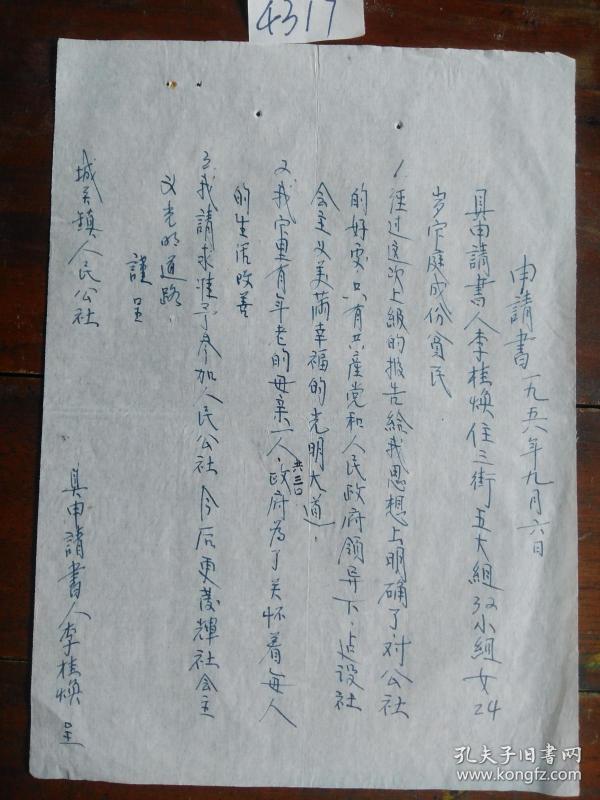 4317
申請書一九五八年九月六日
具申請書人李桂煥住三街五大組32小組女24
岁家庭成份貧民
1.經过这次上級的报告給我思想上明确了对公社
的好處只有共產党和人民政府領导下，建設社
会主义美滿幸福的光明大道，
2.我家里有年老的母亲一人，共三口政府為了关怀着每人
的生活改善
3.我請求准予参加人民公社今后更發輝社会主
义光明道路．
謹呈
城关鎮人民公社
具申請書人李桂煥 呈
孔夫子旧书网
www.kongfz.com